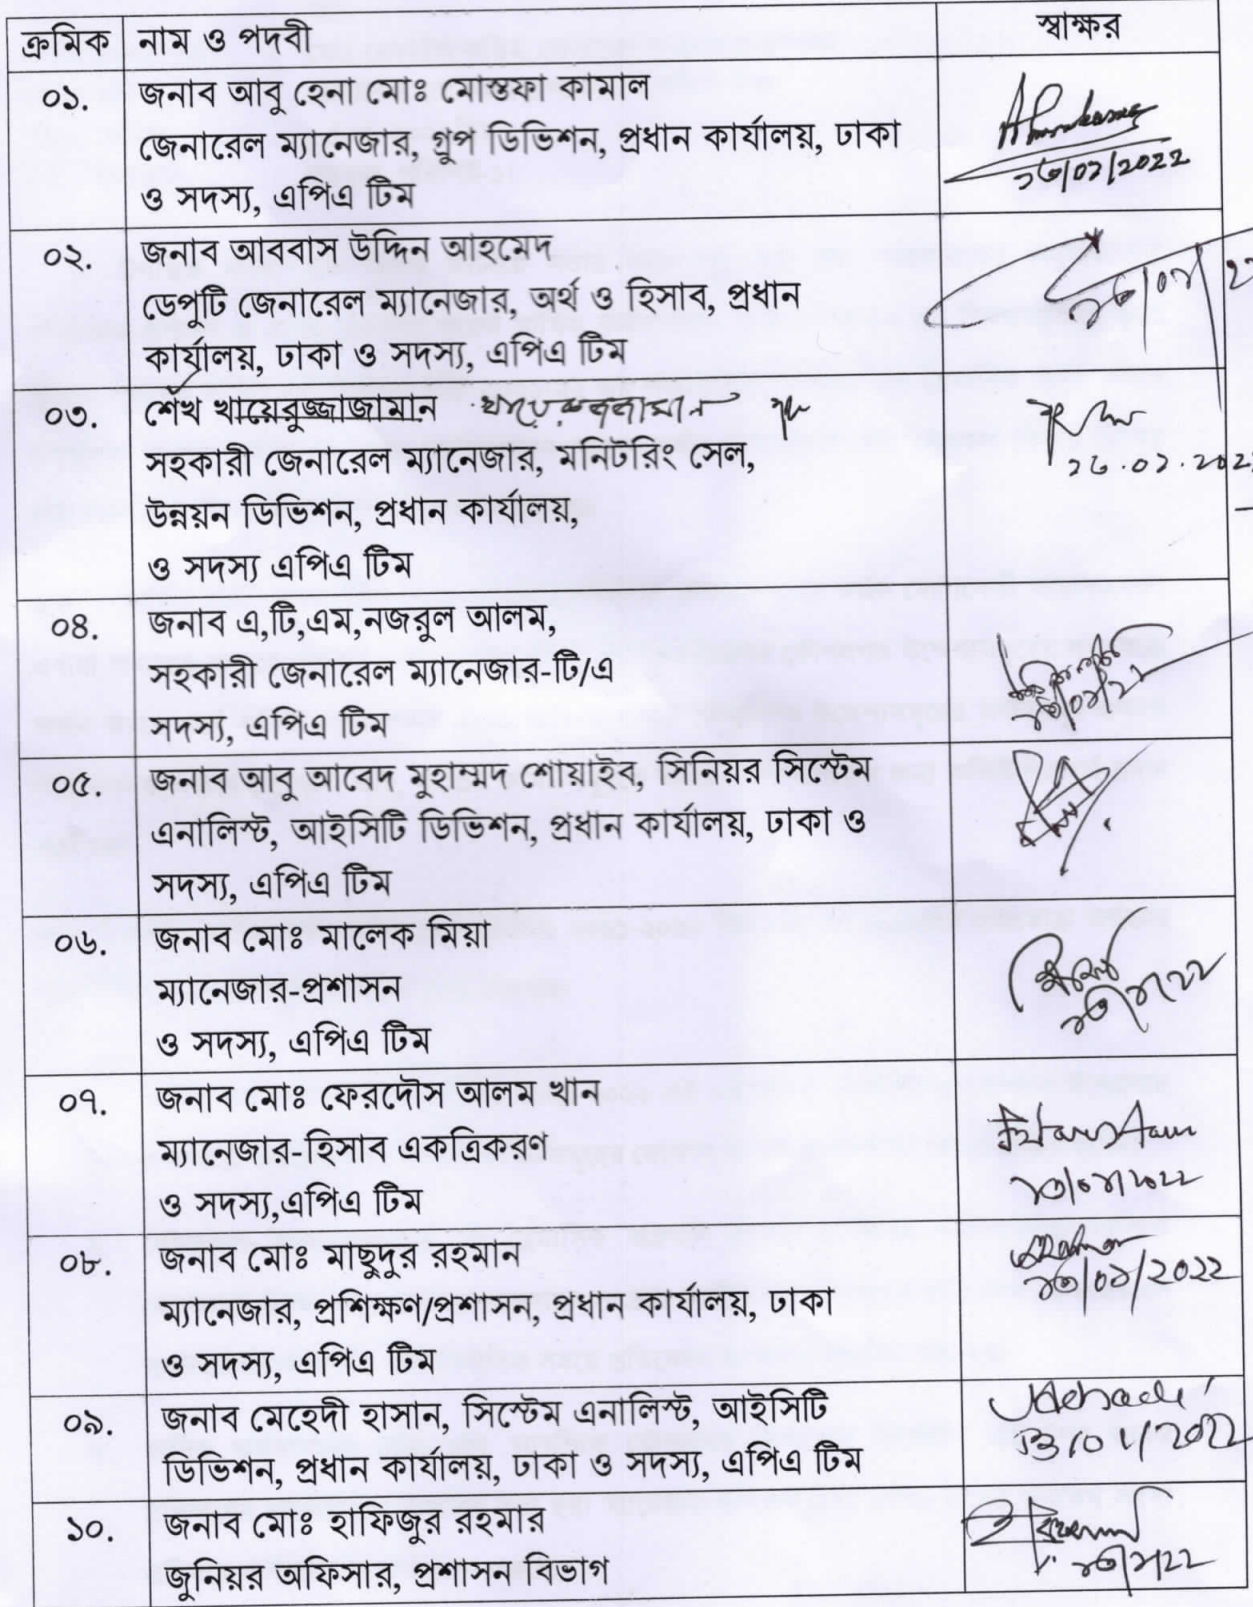 ক্রমিক নাম ও পদবী স্বাক্ষর
০১. জনাব আবু হেনা মোঃ মোস্তফা কামাল
জেনারেল ম্যানেজার, গ্রুপ ডিভিশন, প্রধান কার্যালয়, ঢাকা
ও সদস্য, এপিএ টিম
১৩/০১/2022
০২. জনাব আববাস উদ্দিন আহমেদ
ডেপুটি জেনারেল ম্যানেজার, অর্থ ও হিসাব, প্রধান
কার্যালয়, ঢাকা ও সদস্য, এপিএ টিম
০৩. শেখ খায়েরুজ্জাজামান
সহকারী জেনারেল ম্যানেজার, মনিটরিং সেল,
উন্নয়ন ডিভিশন, প্রধান কার্যালয়,
ও সদস্য এপিএ টিম
০৪. জনাব এ,টি,এম,নজরুল আলম,
সহকারী জেনারেল ম্যানেজার-টি/এ
সদস্য, এপিএ টিম
০৫. জনাব আবু আবেদ মুহাম্মদ শোয়াইব, সিনিয়র সিস্টেম
এনালিস্ট, আইসিটি ডিভিশন, প্রধান কার্যালয়, ঢাকা ও
সদস্য, এপিএ টিম
০৬. জনাব মোঃ মালেক মিয়া
ম্যানেজার-প্রশাসন
ও সদস্য, এপিএ টিম
০৭. জনাব মোঃ ফেরদৌস আলম খান
ম্যানেজার-হিসাব একত্রিকরণ
ও সদস্য,এপিএ টিম
০৮. জনাব মোঃ মাছুদুর রহমান
ম্যানেজার, প্রশিক্ষণ/প্রশাসন, প্রধান কার্যালয়, ঢাকা
১৩/০১/2022
ও সদস্য, এপিএ টিম
০৯. জনাব মেহেদী হাসান, সিস্টেম এনালিস্ট, আইসিটি
ডিভিশন, প্রধান কার্যালয়, ঢাকা ও সদস্য, এপিএ টিম
13/01/2022
১০. জনাব মোঃ হাফিজুর রহমার
জুনিয়র অফিসার, প্রশাসন বিভাগ